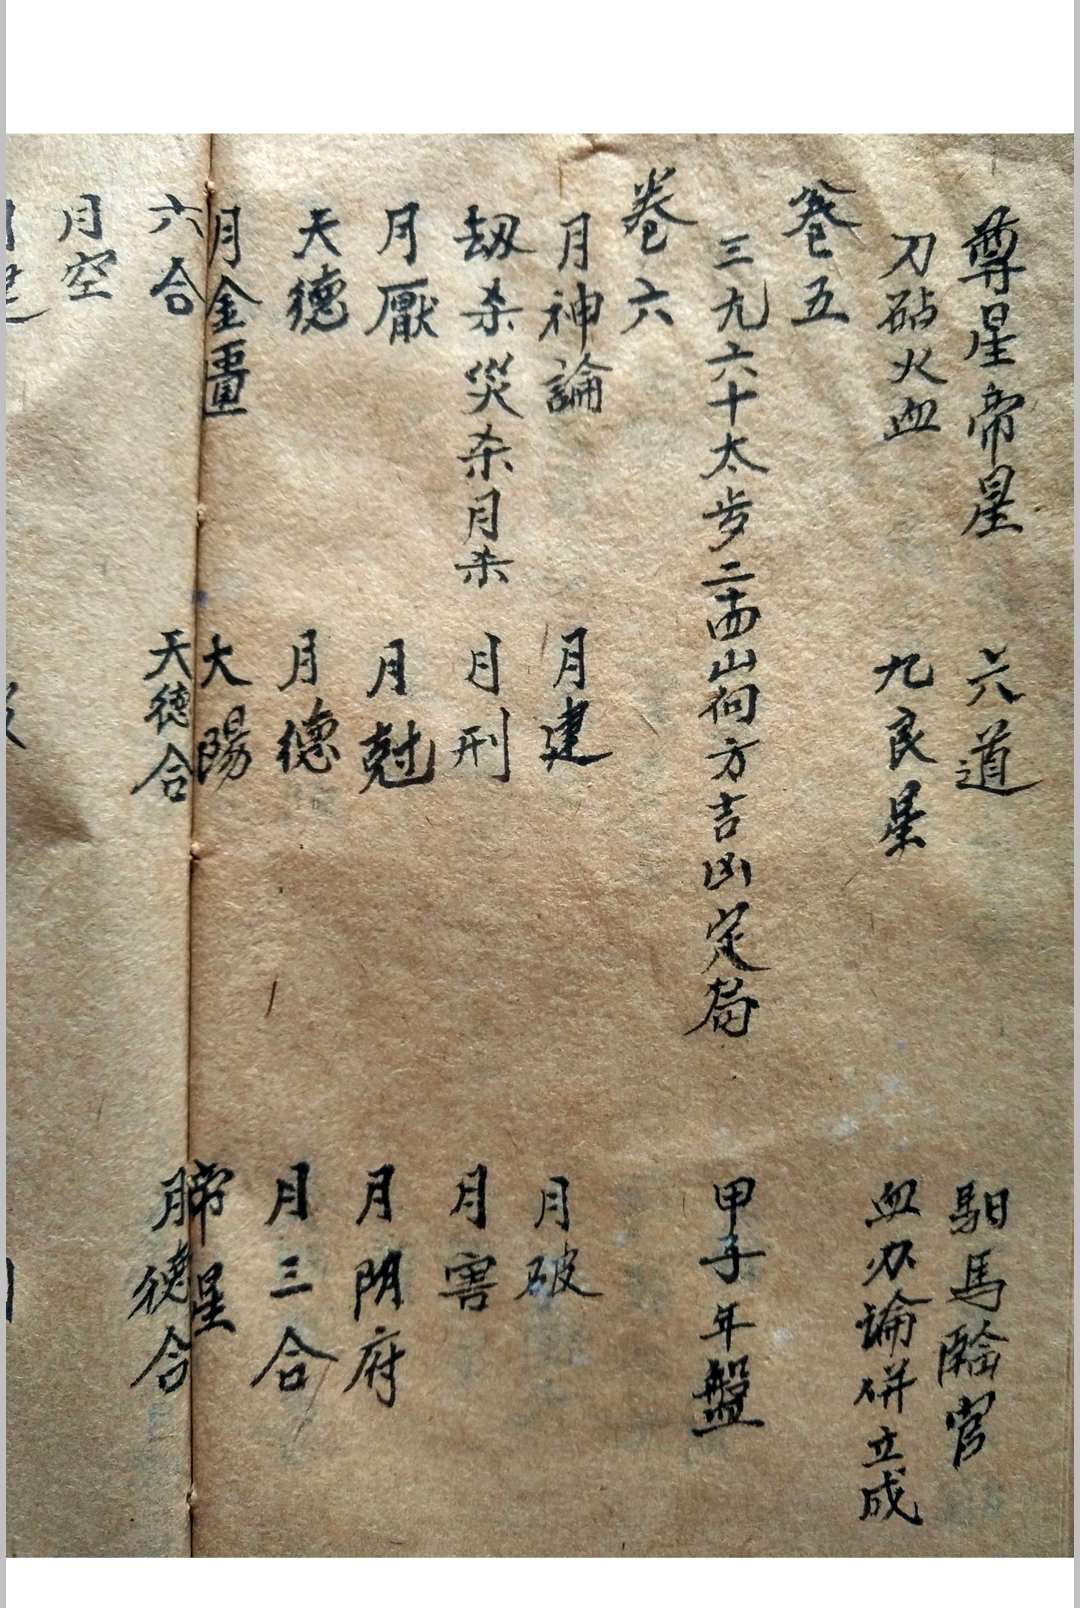 尊星帝星　六道　馹馬臨官
刀砧火血　九良星　血刃論併立成
卷五
三九六十太步二十四山向方吉凶定局　甲子年盤
卷六
月神論　月建　月破
劫杀災杀月杀　月刑　月害
月厭　月尅　月阴府
天德　月德　月三合
月金匱　太陽　帝星
六合　天德合　月德合
月空